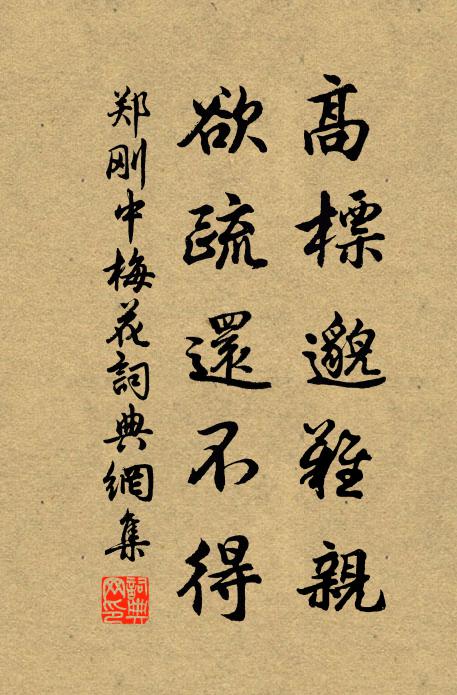 高標邈難親
欲疏還不得
郑刚中梅花詞典網集
詞典网印